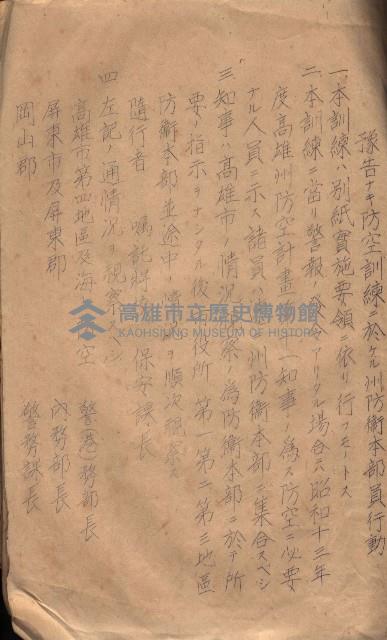 豫告ナキ防空訓練ニ於ケル州防衛本部員行動
一、本訓練ハ別紙實施要領ニ依リ行フモートス
二、本訓練ニ當リ警報ノ發令アリタル場合ハ昭和十三年
度高雄州防空計畫 一知事ノ為ス防空ニ必要
ナル人員ニ示ス諸員ハ 州防衛本部ニ集合スベシ
三、知事ハ高雄市ノ情況 察ノ為防衛本部ニ於テ所
要ノ指示ヲナシタル後 役所 第一第二第三地區
防衛本部並途中ノ ヲ順次視察ス
隨行者 囑託將 保安課長
四、左記ノ通情況ヲ視察
高雄市第四地區及海 空 警務部長
屏東市及屏東郡 內務部長
岡山郡 警務課長
高雄市立歷史博物館
KAOHSIUNG MUSEUM OF HISTORY